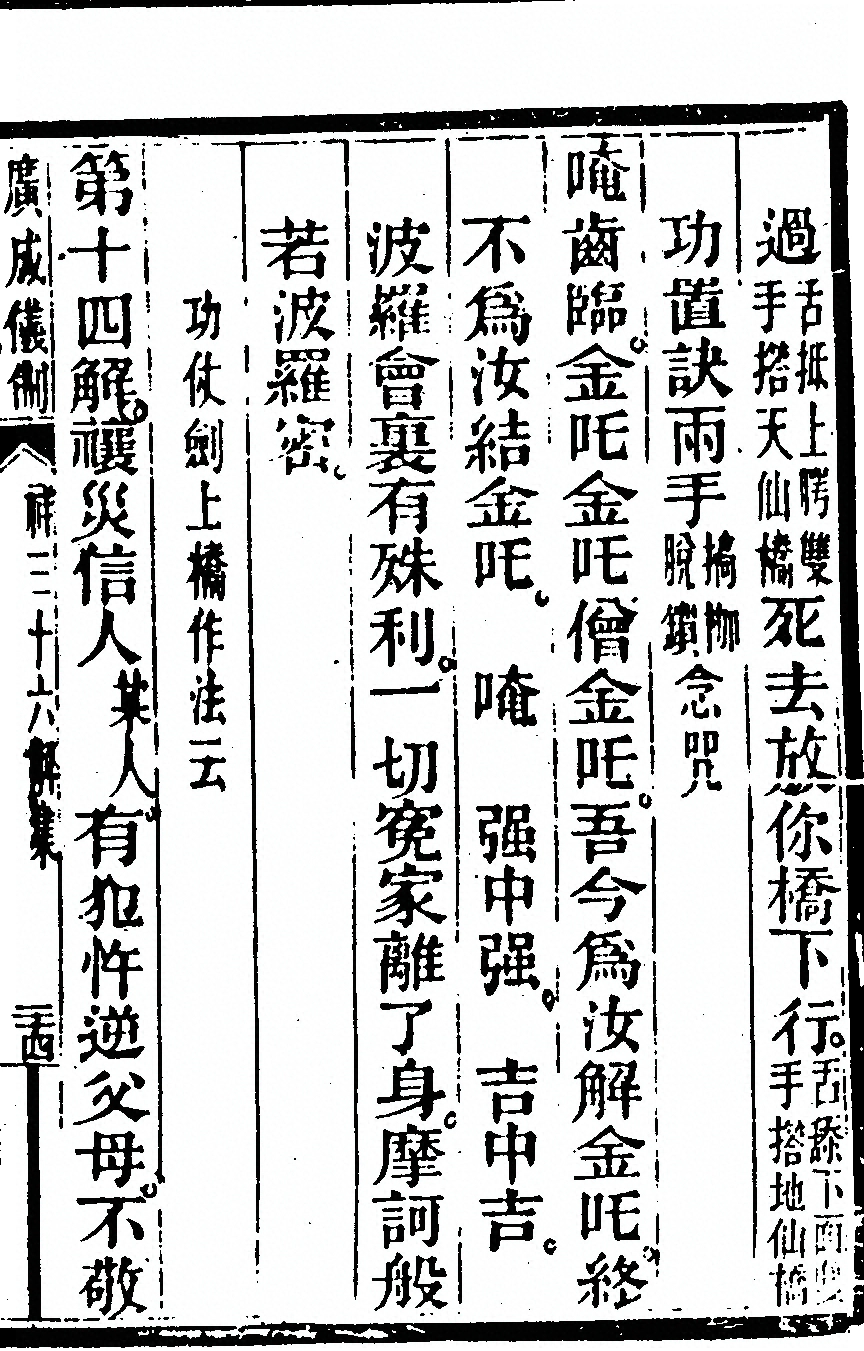 過舌抵上腭雙手搭天仙橋死去放你橋下行。舌舔下面雙手搭地仙橋
功置訣兩手搞枷脫鎖念咒
唵齒臨。金吒金吒僧金吒。吾今爲汝解金吒。終
不爲汝結金吒。唵　强中强。吉中吉。
波羅會裏有殊利。一切寃家離了身。摩訶般
若波羅密。
功仗劍上橋作法云
第十四解。禳災信人某人。有犯忤逆父母。不敬
廣成儀制　禳三十六解集　二四